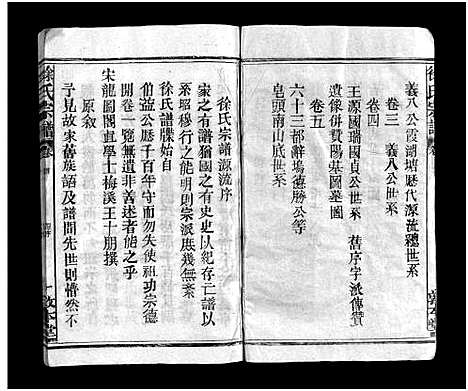 徐氏宗譜
義八公霞湖塘歷代源流總世系
卷三 義八公世系
卷四
王源國瑞國貞公世系 舊序字派傳贊
遺像併贊陽基圖墓圖
卷五
六十三都辭塢德勝公等
皂頭南山底世系
徐氏宗譜源流序
家之有譜猶國之有史史以紀存亡譜以
系昭穆行之能明則宗派庶幾無紊
徐氏譜牒始自
伯益公歷千百年守而勿失使祖功宗德
開卷一覽無遺非善述者能之乎
宋龍圖閣直學士梅溪王十朋撰
原敘
予見故家舊族詔及譜間先世則惜然不
徐氏宗譜
敦本堂